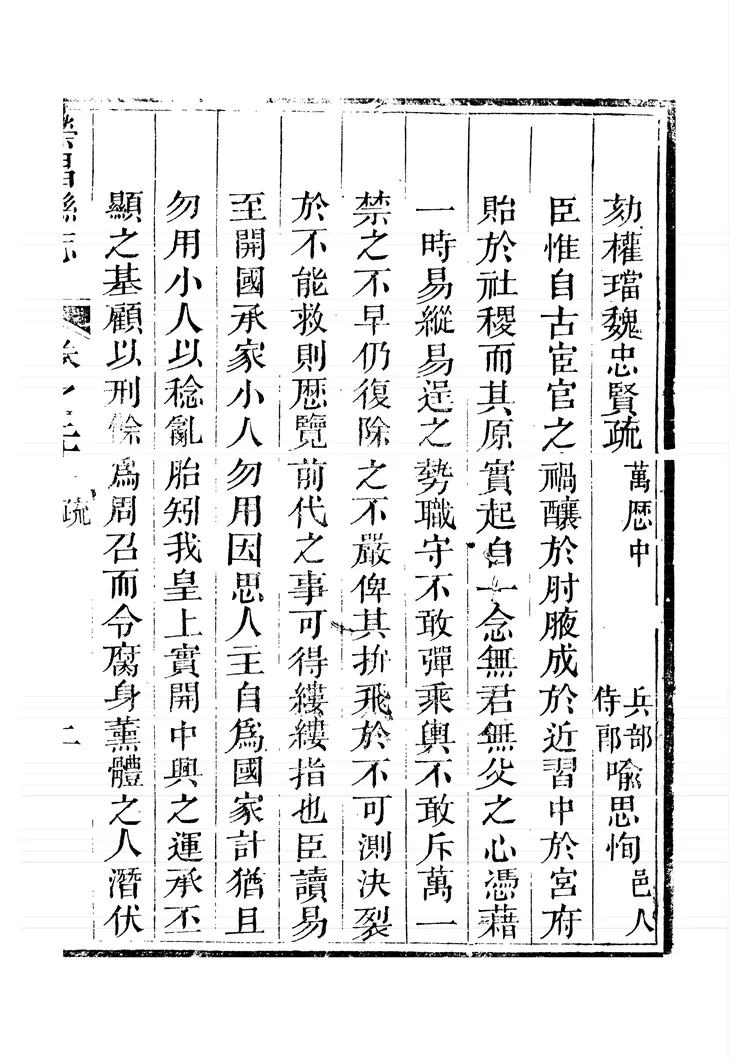 劾權璫魏忠賢疏 萬歴中 兵部侍郎喩思恂邑人
臣惟自古宦官之禍釀於肘腋成於近習中於宮府
貽於社稷而其原實起自一念無君無父之心憑藉
一時易縱易逞之勢職守不敢彈乘輿不敢斥萬一
禁之不早仍復除之不嚴俾其拚飛於不可測決裂
於不能救則歴覽前代之事可得縷縷指也臣讀易
至開國承家小人勿用因思人主自爲國家計猶且
勿用小人以稔亂胎矧我皇上實開中興之運承丕
顯之基顧以刑餘爲周召而令腐身薰體之人潛伏
榮昌縣志 卷之二十 疏 二